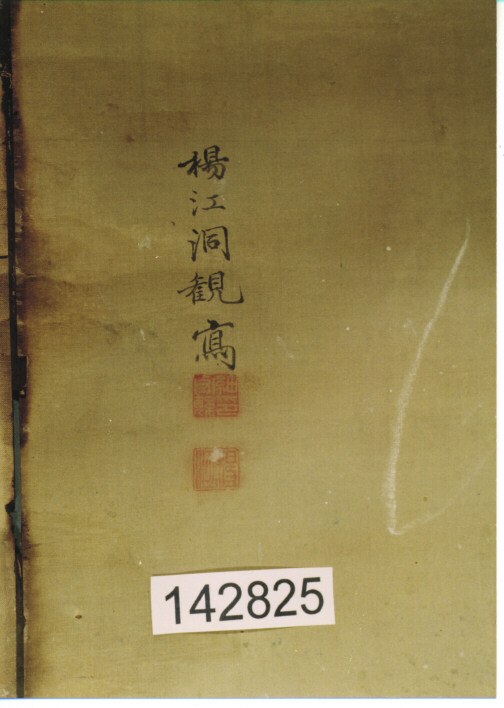 楊江洞観寫
142825